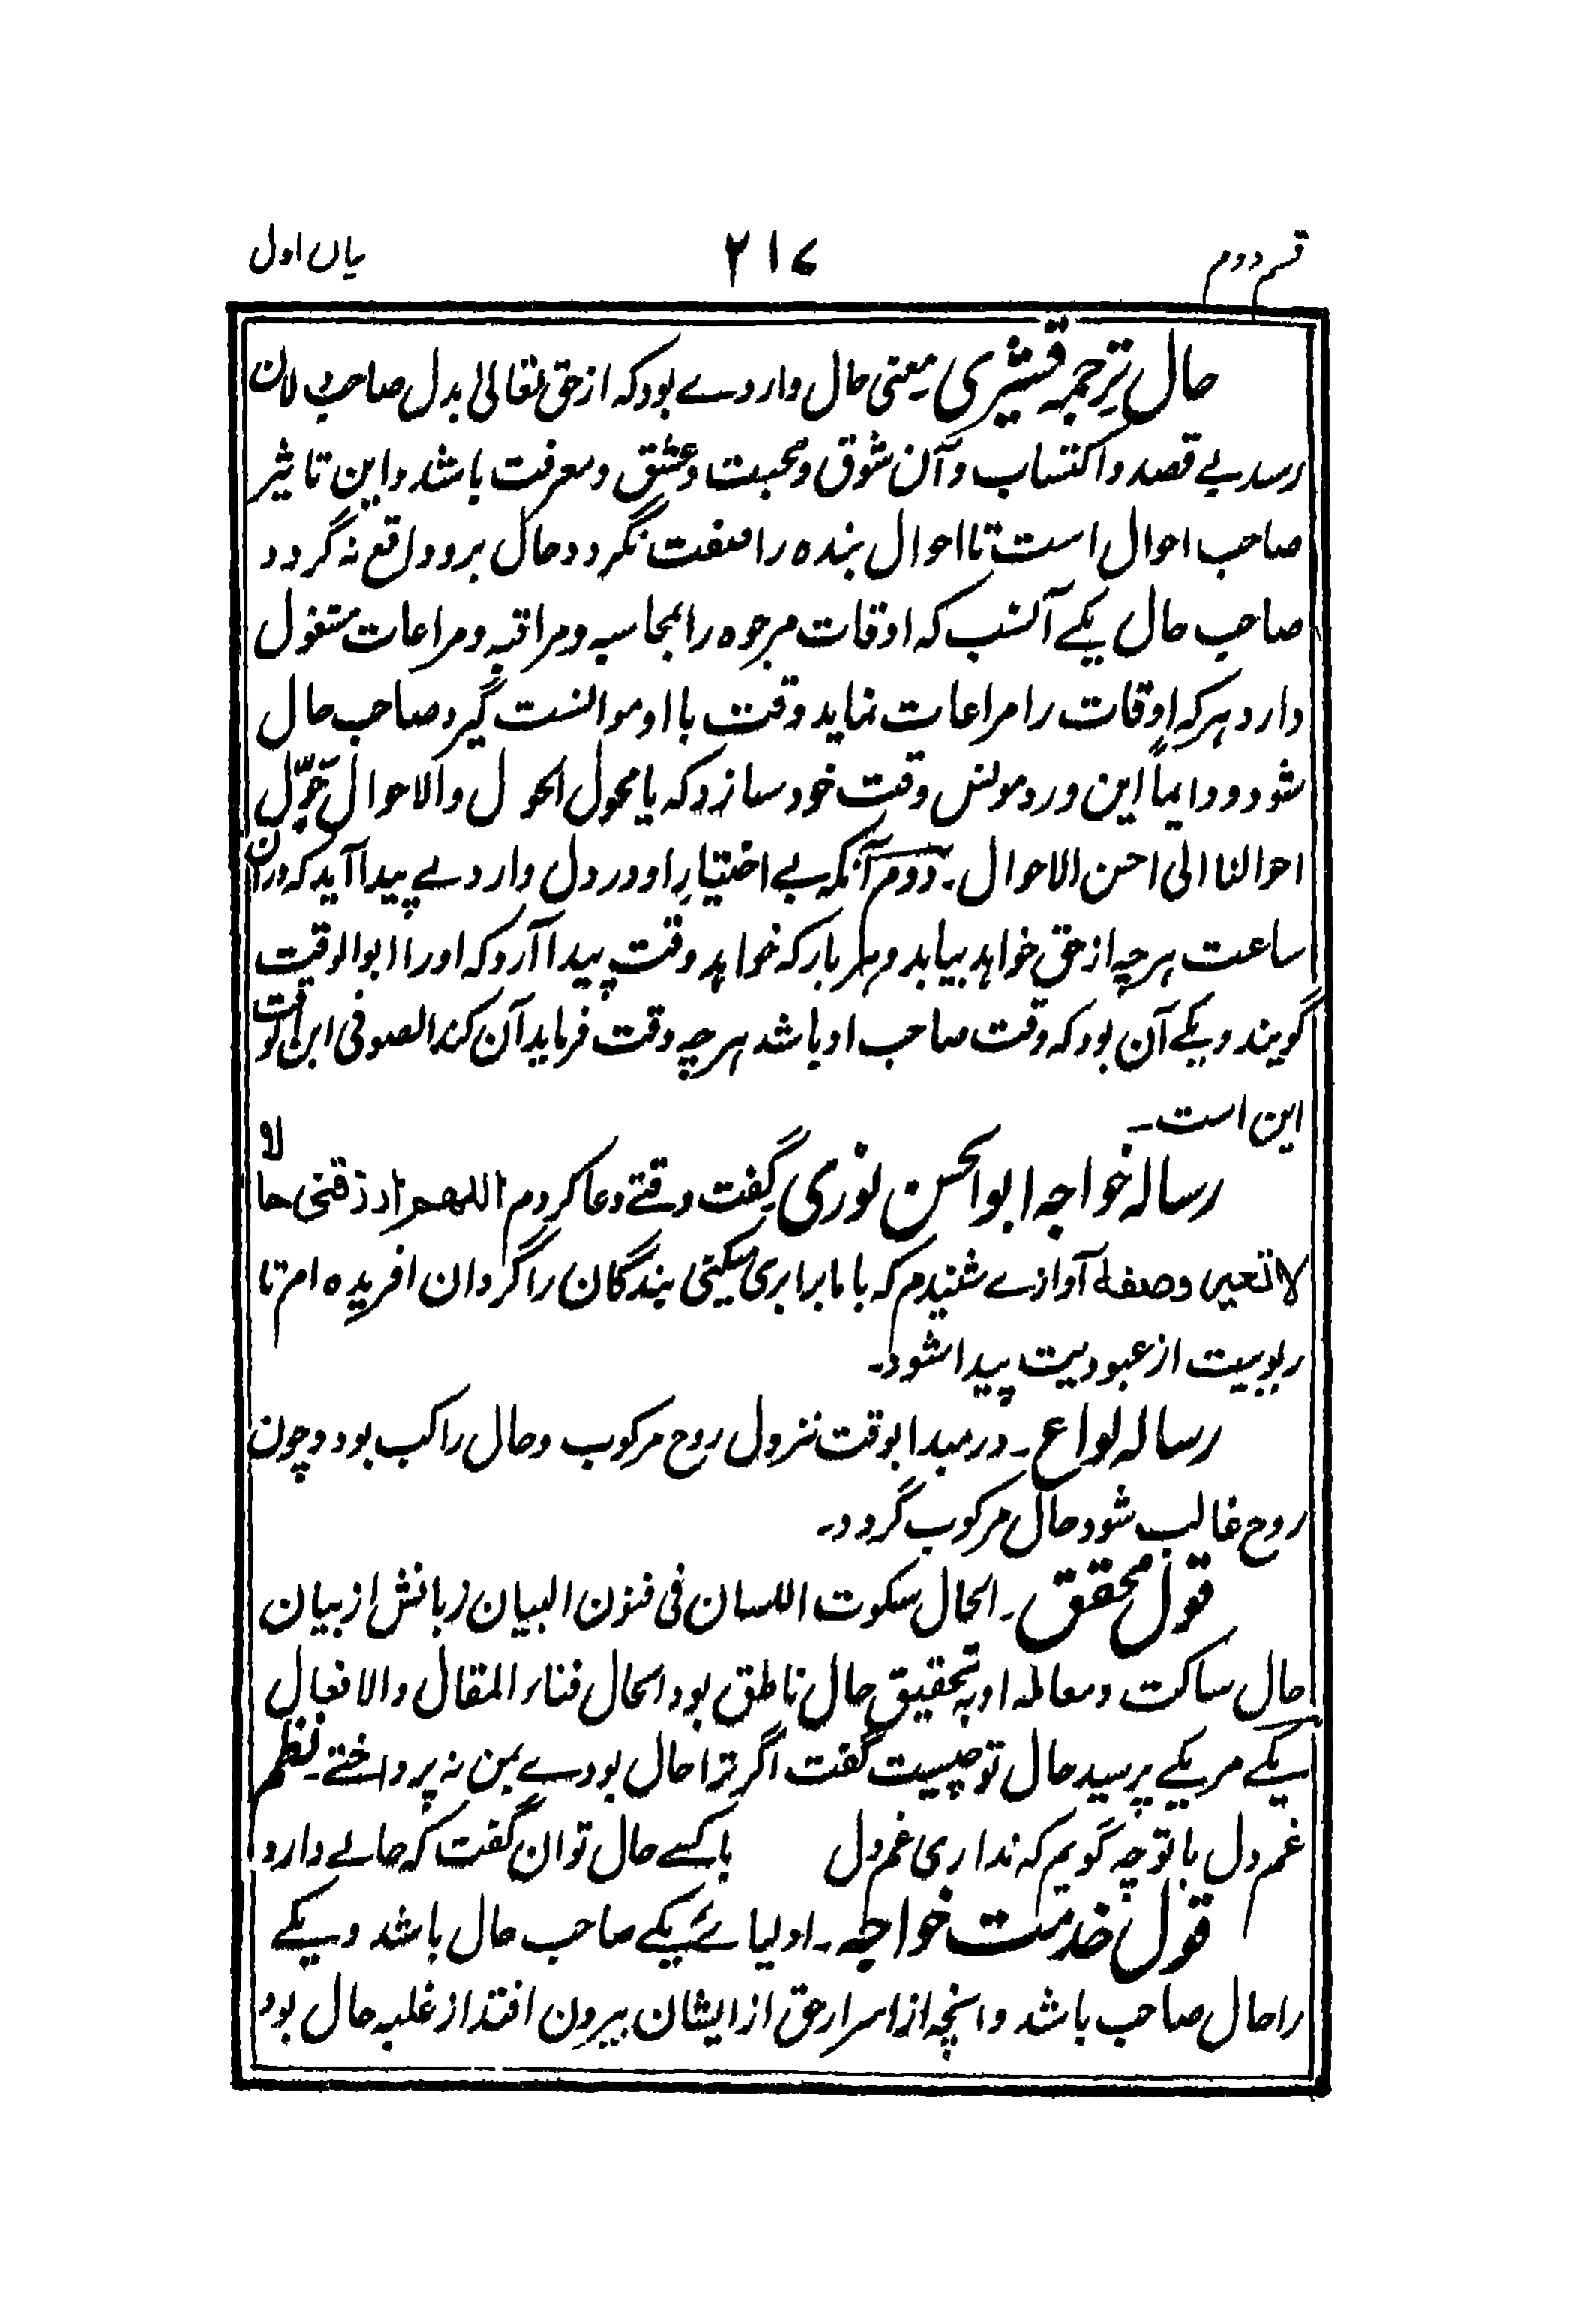 قسم دوم
۲۱۷
بیاں اول
حال ترجمہ قشیری یعنی حال واردے بود کہ از حق تعالی بدل صاحب لان
رسد بے قصد و اکتساب و آن شوق و محبت و عشق و معرفت باشد و این تاثیر
صاحب احوال است تا احوال بندہ را صفت نگردد حال برو واقع نہ گردد
صاحب حال یکے آنست کہ اوقات مرجوہ را بمحاسبہ و مراقبہ و مراعات مشغول
دارد ہر کہ اوقات را مراعات نماید وقت با او موانست گیرد صاحب حال
شود و دایماً این ورد مونس وقت خود سازد کہ یا محول الحول والاحوال حَوِّل
احوالنا الی احسن الاحوال ۔ دوم آنکہ بے اختیارِ او در دل واردے پیدا آید کہ دران
ساعت ہر چہ از حق خواہد بیابد و ہر بار کہ خواہد وقت پیدا آرد کہ او را ابوالوقت
گویند و یکے آن بود کہ وقت صاحب او باشد ہر چہ وقت فرماید آن کند الصوفی ابن الوقت
این است ۔
رسالہ خواجہ ابوالحسن نوری گفت وقتے دعا کردم اللھم ارزقنی حالا
لا تغیر وصفہ آوازے شنیدم کہ با ما برابری میکنی بندگان را گردان افریدہ ام تا
ربوبیت از عبودیت پیدا شود ۔
رسالہ لوامع ۔ در مبدا بوقت نزول روح مرکوب و حال راکب بود و چون
روح غالب شود حال مرکوب گردد ۔
قول محقق ۔ الحال سکوت اللسان فی فنون البیان زبانش از بیان
حال ساکت و معاملہ او بہ تحقیق حال ناطق بود الحال فناء المقال والافعال
یکے مر یکے پرسید حال تو چیست گفت اگر ترا حال بودے بمن نہ پرداختے ۔ نظم
غم دل با تو چہ گویم کہ نداری غم دل باکسے حال توان گفت کہ حالے دارد
قول خدمت خواجہ ۔ اولیائے یکے صاحب حال باشد و یکے
را حال صاحب باشد و انچہ از اسرار حق از ایشان بیرون افتد از غلبہ حال بود